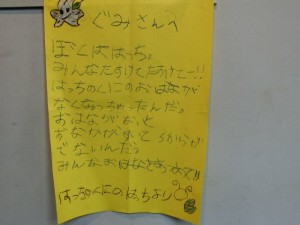 ぐみさんへ
ぼくははっち。
みんなたすけてだけてー!!
はっちのくにのおはなが
なくなっちゃったんだ。
おはながないと
おなかがすいてちからが
でないんだ。
みんなおはなをちょうだい!!
はっちのくにのはっちより